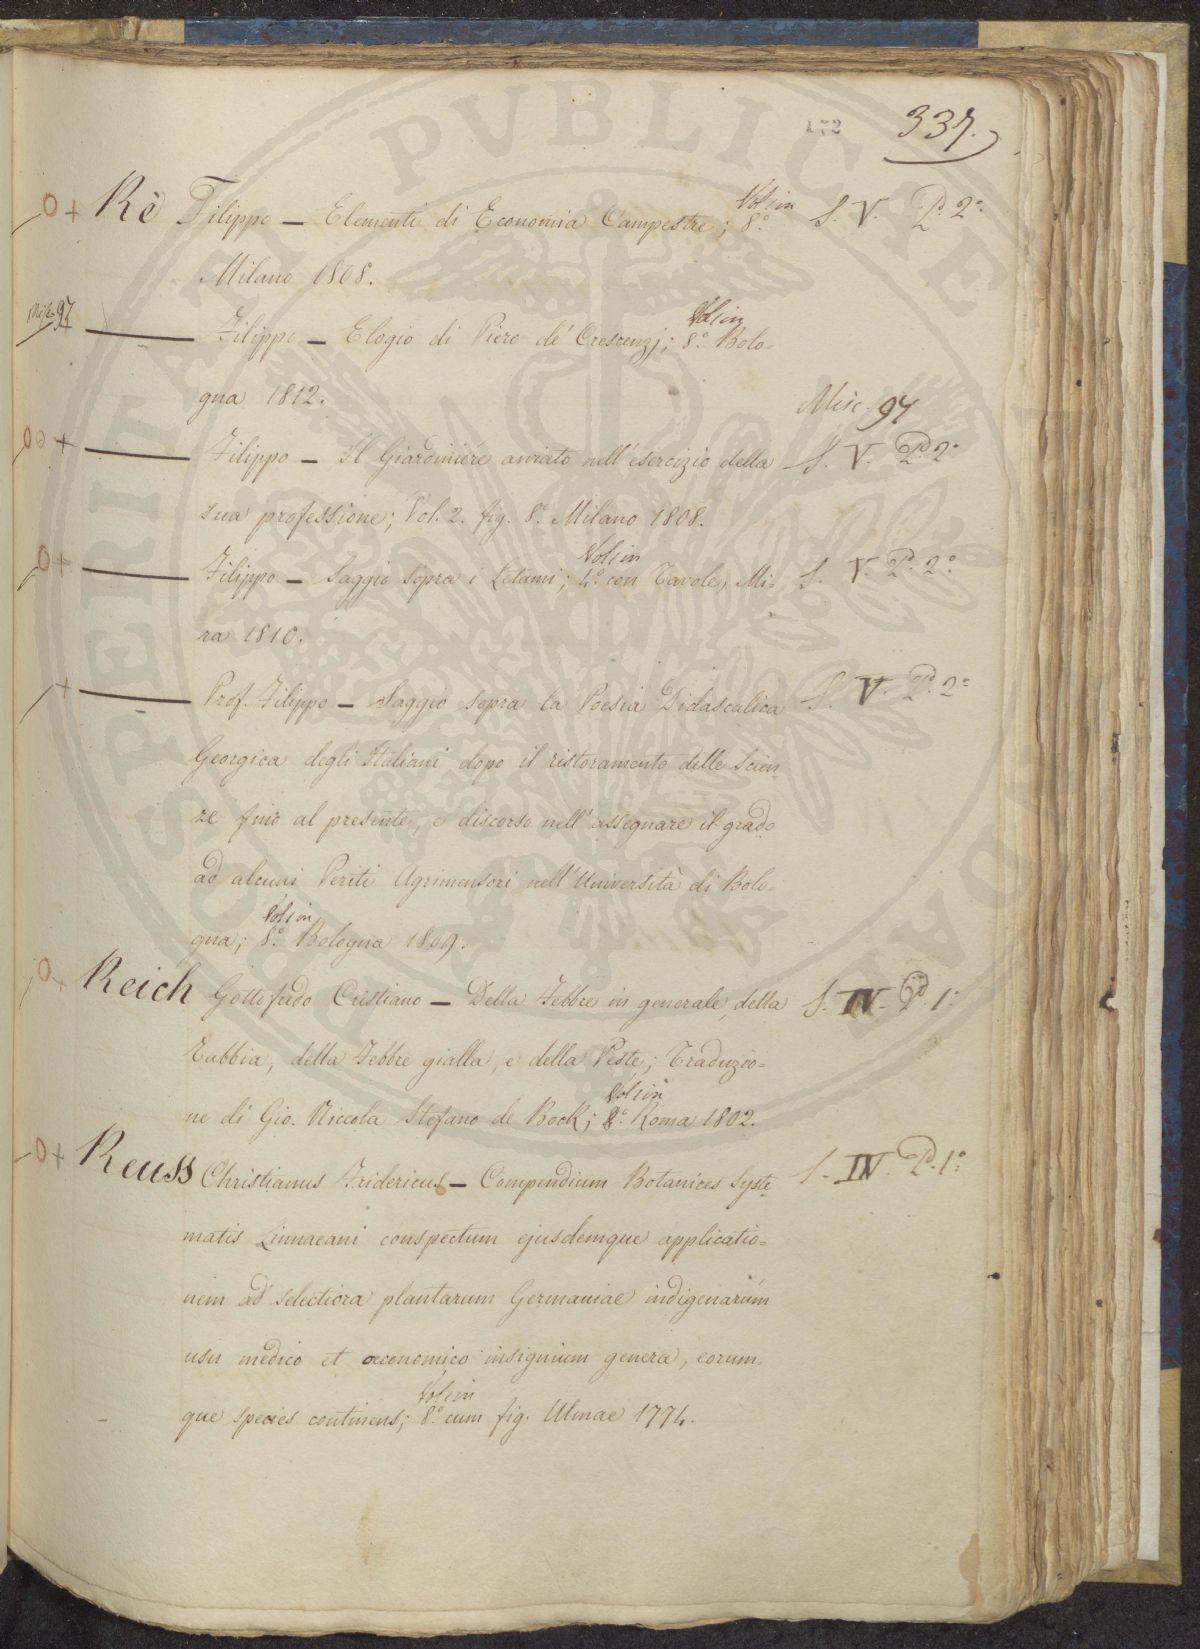 172 337.
Rè Filippo — Elementi di Economia Campestre; Vol in 8.° S. V. P. 2.ª
Milano 1808.
Misc. 97
Filippo — Elogio di Piero de' Crescenzj; Vol in 8.° Bolo=
gna 1812. Misc. 97
Filippo — Il Giardiniére aviato nell'esercizio della S. V. P. 2.ª
sua professione; Vol. 2. fig. 8.° Milano 1808.
Filippo — Saggio sopra i Letami; Vol in 4.° con Tavole, Mi= S. V. P. 2.ª
ra 1810.
Prof. Filippo — Saggio sopra la Poesia Didascalica S. V. P. 2.ª
Georgica degli Italiani dopo il ristoramento delle Scien
ze fino al presente, e discorso nell'assegnare il grado
ad alcuni Periti Agrimensori nell'Università di Bolo=
gna; Vol in 8.° Bologna 1809.
Reich Gottofredo Cristiano — Della Febbre in generale, della S. IV. P. 1.ª
Rabbia, della Febbre gialla, e della Peste; Traduzio=
ne di Gio. Niccola Stefano de Bock; Vol in 8.° Roma 1802.
Reuss Christianus Fridericus — Compendium Botanices Syste S. IV. P. 1.ª
matis Linnaeani conspectum ejusdemque applicatio=
nem ad selectiora plantarum Germaniae indigenarum
usu medico et oeconomico insignium genera, eorum=
que species continens; Vol in 8.° cum fig. Ulmae 1774.